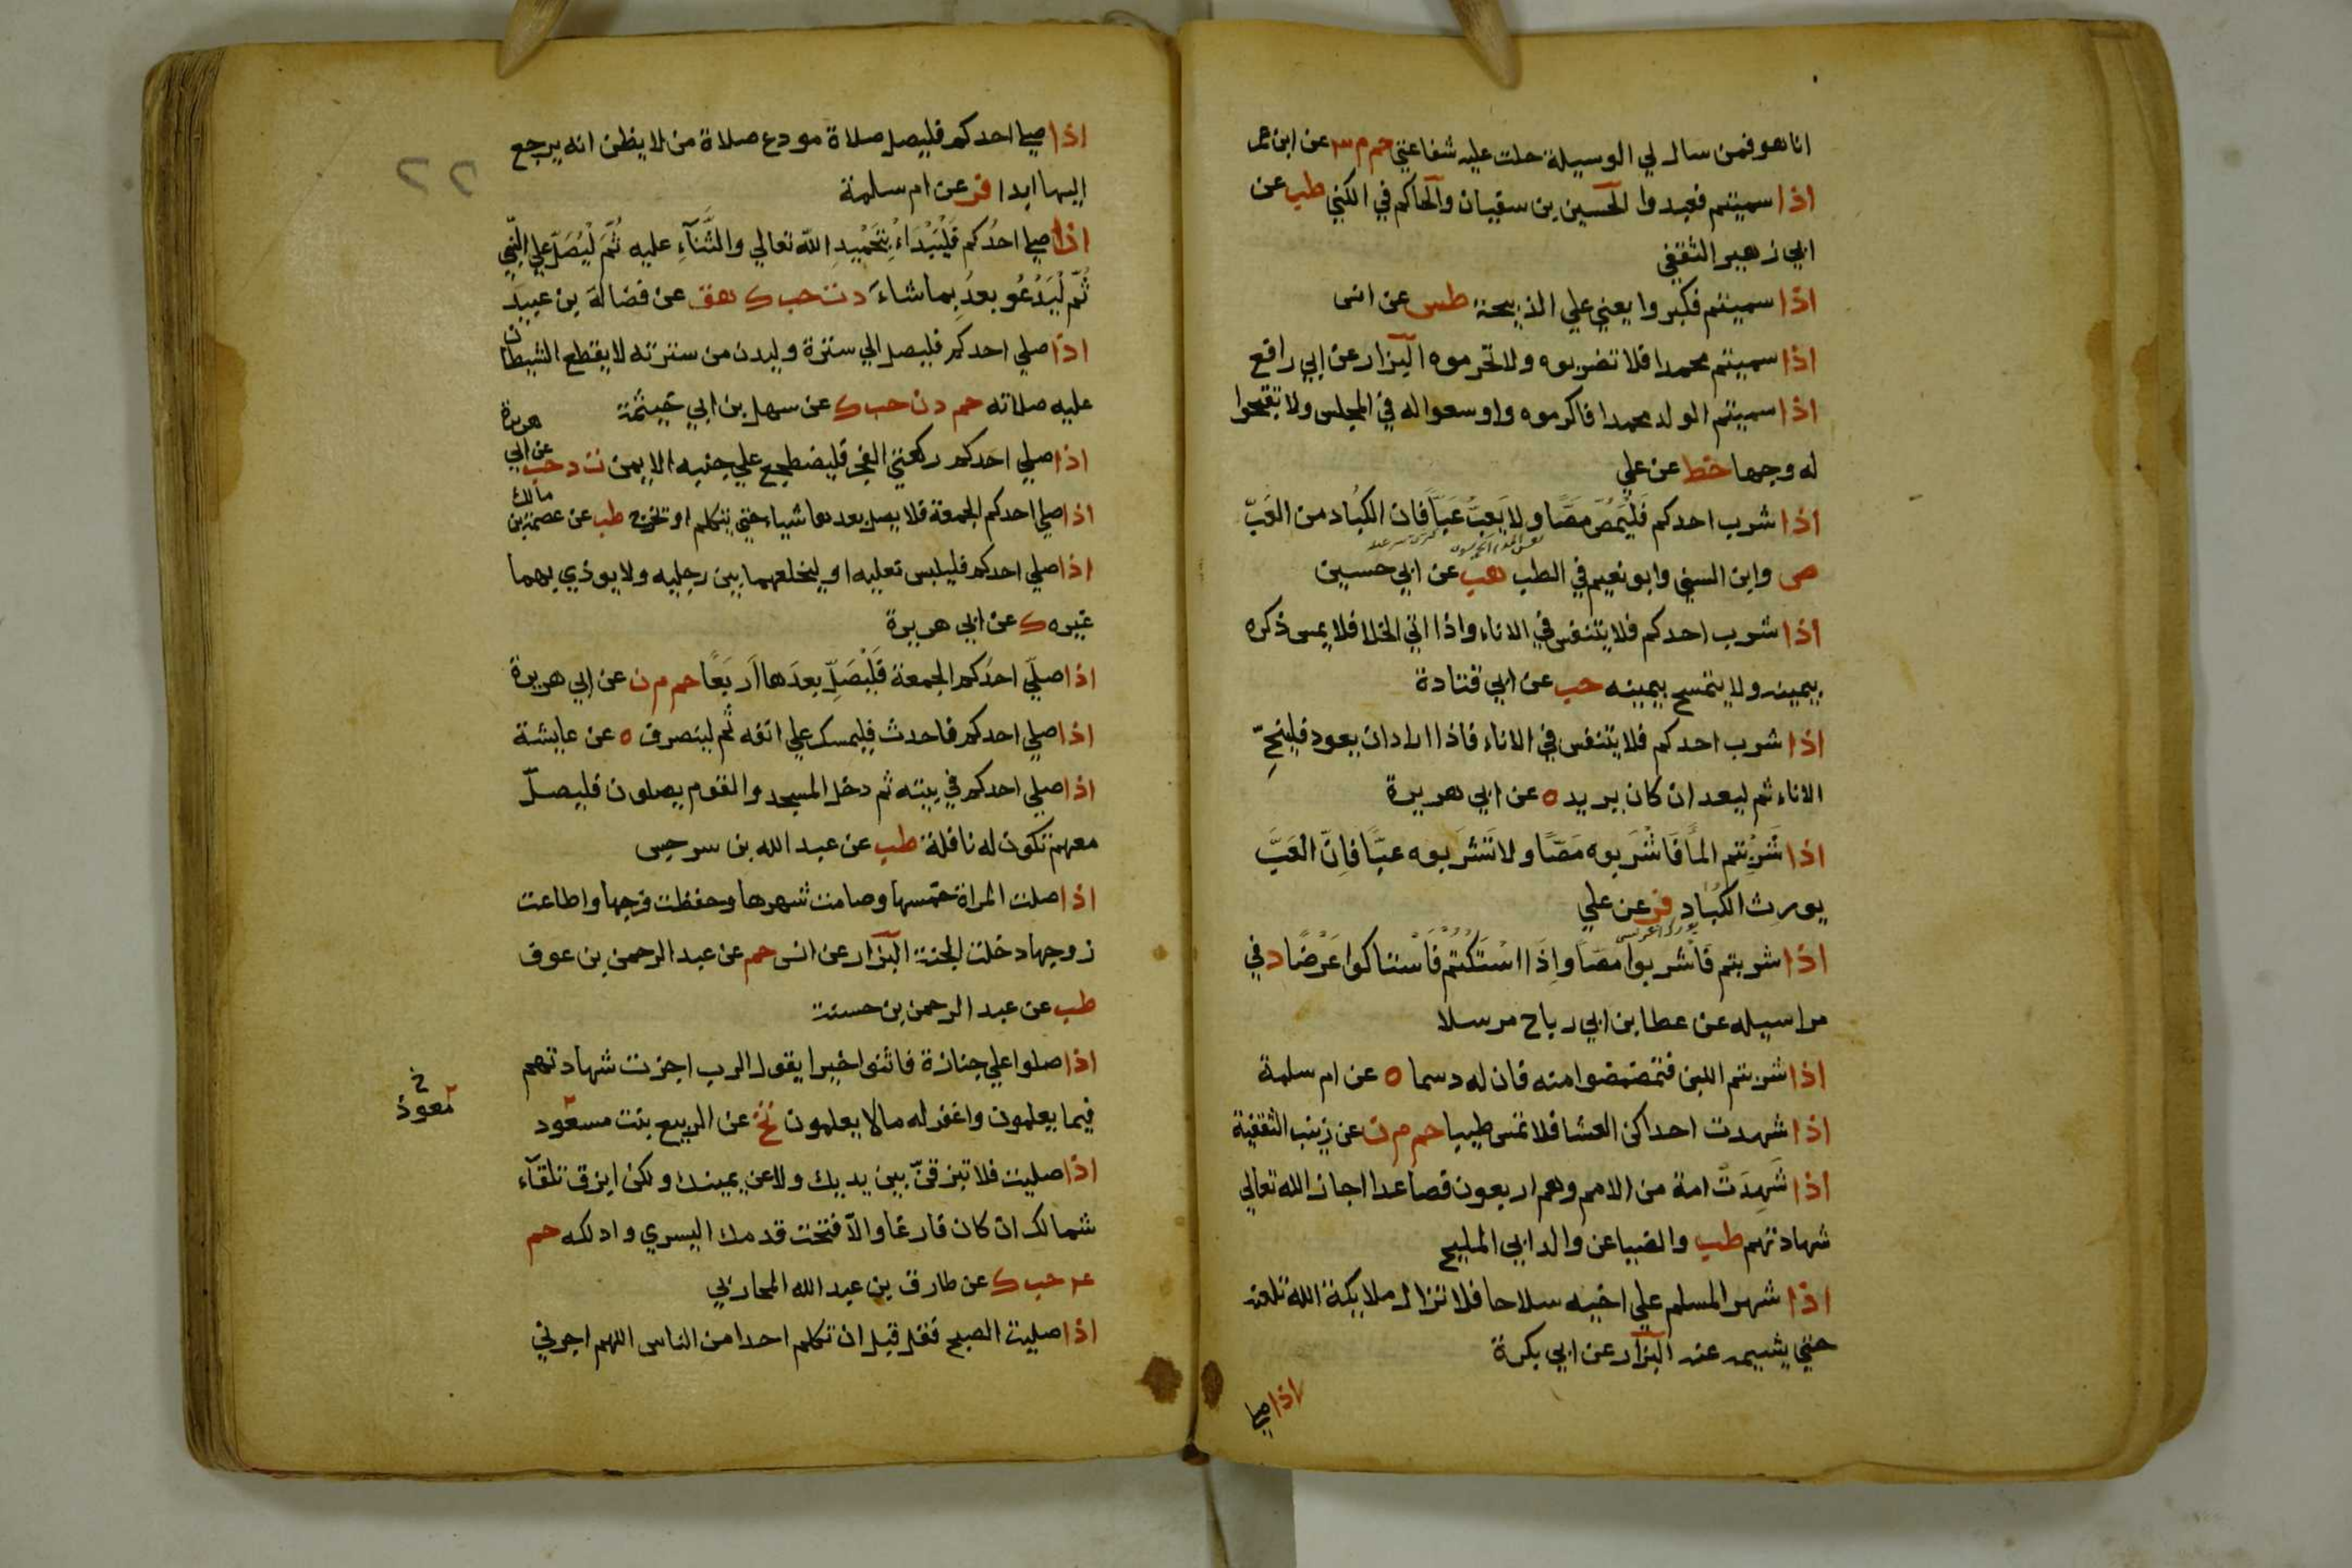 انا هو فمن سال لي الوسيلة حلت عليه شفاعتي حم م ٣ عن ابن عمر
اذا سميتم فعبدوا الحسين بن سفيان والحاكم في الكني طب عن
ابي زهير الثقفي
اذا سميتم فكبروا يعني علي الذبيحة طس عن انس
اذا سميتم محمدا فلا تضربوه ولا تحرموه البزار عن ابي رافع
اذا سميتم الولد محمدا فاكرموه واوسعوا له في المجلس ولا تقبحوا
له وجها خط عن علي
اذا شرب احدكم فَلْيَمُصّ مَصًّا ولا يَعُبّ عَبًّا فان الكُباد من العَبّ
ص وابن السني وابو نعيم في الطب هب عن ابي حسين
اذا شرب احدكم فلا يتنفس في الاناء واذا اتي الخلا فلا يمس ذكره
بيمينه ولا يتمسح بيمينه حب عن ابي قتادة
اذا شرب احدكم فلا يتنفس في الاناء فاذا اراد ان يعود فلينحِّ
الاناء ثم ليعد ان كان يريد ه عن ابي هريرة
اذا شَرِبتم المأ فَاشْرَبوه مَصًّا ولا تَشرَبوه عبًّا فاِنّ العَبَّ
يورث الكُبادِ فر عن علي
اذا شربتم فَاشْربوا مَصًّا واِذَا اسْتَكْتُمْ فَاسْتاكوا عَرْضًا د في
مراسيله عن عطا بن ابي رباح مرسلا
اذا شربتم اللبن فتمضمضوا منه فان له دسما ه عن ام سلمة
اذا شهدت احداكن العشا فلا تمس طيبا حم م ن عن زينب الثقفية
اذا شَهِدَتْ امة من الامم وهم اربعون فصاعدا اجاز الله تعالي
شهادتهم طب والضيا عن والد ابي المليح
اذا شهر المسلم علي اخيه سلاحا فلا تزال ملايكة الله تلعنه
حتي يشيمه عنه البزار عن ابي بكرة
اذا صلي
٢٢
اذا صلي احدكم فليصل صلاة مودع صلاة من لا يظن انه يرجع
اليها ابدا فر عن ام سلمة
اذا صلي احدُكم فَلْيَبْدَاء بتَحْمِيْدِ الله تعالي والثَّنآءِ عليه ثُمّ لْيُصَلّ علي النبي
ثُمّ لْيَدْعُو بعدُ بِما شاءَ د ت حب ك هق عن فضالة بن عبيد
اذا صلي احدكم فليصل الي سترة وليدن من سترته لا يقطع الشيطان
عليه صلاته حم د ن حب ك عن سهل بن ابي حيثمة
اذا صلي احدكم ركعتي الفجر فليضطجع علي جنبه الايمن ت د حب عن ابي هريرة
اذا صلي احدكم الجمعة فلا يصل بعدها شياء حتي يتكلم او تخرج طب عن عصمة بن مالك
اذا صلي احدكم فليلبس نعليه او ليخلعهما بين رجليه ولا يوذي بهما
غيره ك عن ابي هريرة
اذا صلّي احدُكم الجمعة فَلْيُصَلِّ بعدَها اَربَعًا حم م ن عن ابي هريرة
اذا صلي احدكم فاحدث فليمسك علي انفه ثم لينصرف ه عن عايشة
اذا صلي احدكم في بيته ثم دخل المسجد والقوم يصلون فليصلّ
معهم تكون له نافلة طب عن عبد الله بن سرجس
اذا صلت المراة خمسها وصامت شهرها وحفظت فرجها واطاعت
زوجها دخلت الجنة البزار عن انس حم عن عبد الرحمن بن عوف
طب عن عبد الرحمن بن حسنة
اذا صلوا علي جنازة فاثنوا خيرا يقول الرب اجزت شهادتهم
فيما يعلمون واغفر له ما لا يعلمون تخ عن الربيع بنت مسعود
خ معوذ
اذا صليت فلا تبزقنّ بين يديك ولا عن يمينك ولكن ابزق تلقآء
شمالك ان كان فارغا والاّ فتحت قدمك اليسري وادلكه حم
ع حب ك عن طارق بن عبد الله المحاربي
اذا صليت الصبح فقل قبل ان تكلم احدا من الناس اللهم اجرني